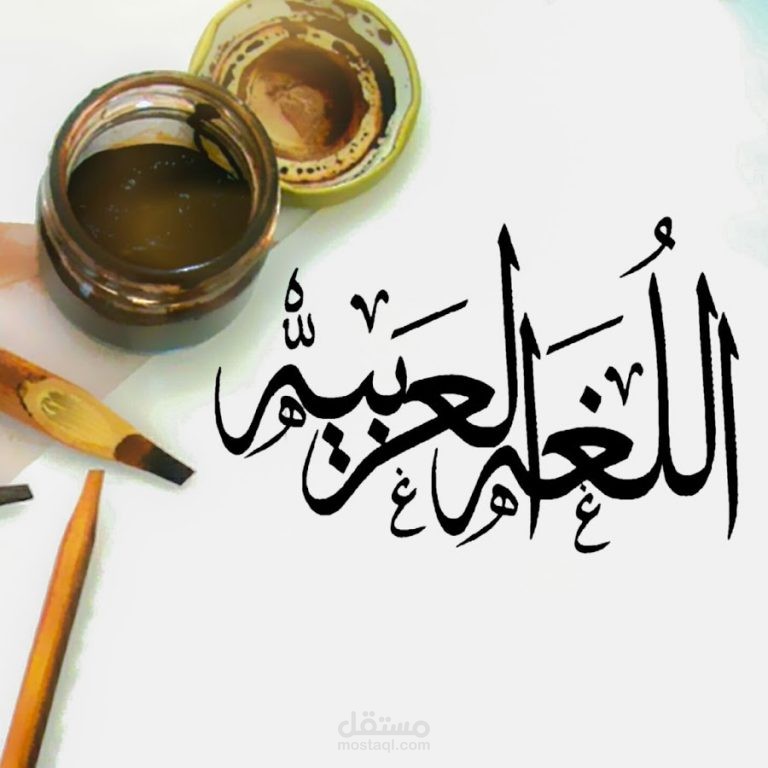 اللُغَه العَربيَّه
مستقل
mostaql.com